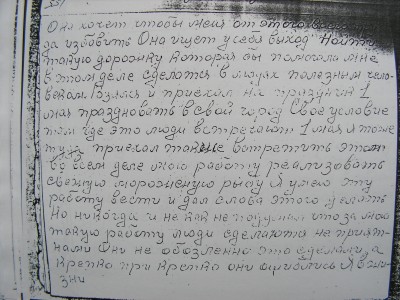 551
Она хочет чтобы меня от этого всег
да избавить Она ищет у себя выход Найти
такую дорожку которая бы помогала мне
в этом деле сделатся в людях полезным чело
веком Взялся и приехал на праздник 1
мая праздновать в свой город Свое условие
там где это люди встречают 1 мая я тоже
туда приехал также встретить этот
во всем деле мою работу реализовать
свежую мороженую рыбу Я умею эту
работу вести и дал слова этого делать
Но никогда и не как не подумал что за мою
такую работу люди сделаются не прият
нами Они не обозленно это сделали, а
крепко при крепко они ошиблись Я в жи
зни